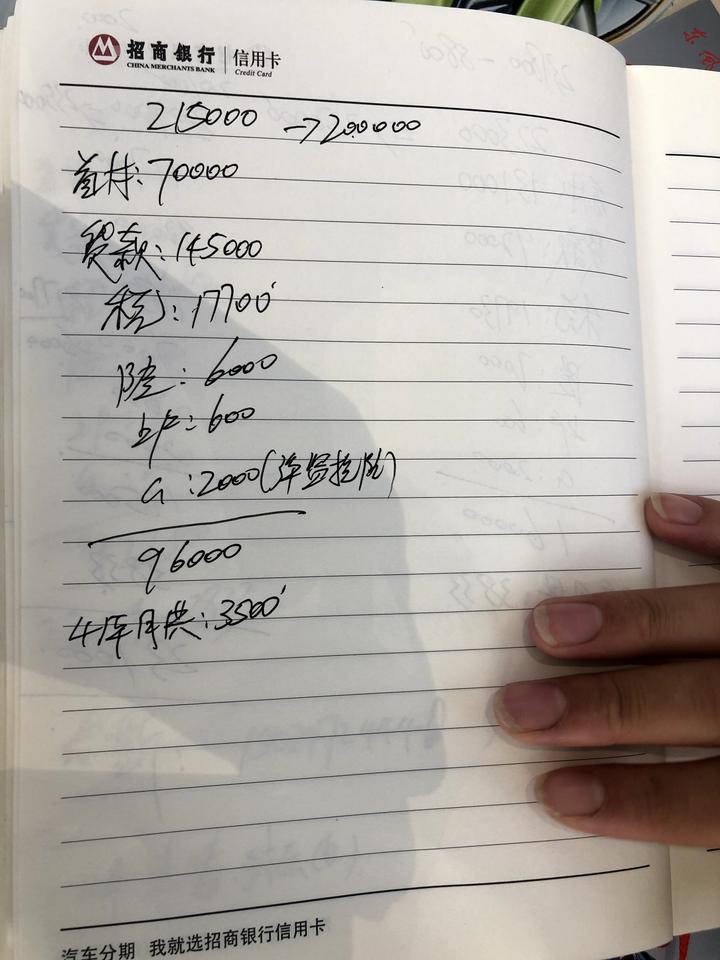 招商银行 信用卡
CHINA MERCHANTS BANK Credit Card
215000 →200000
首付:70000
贷款:145000
税:17700
险:6000
上户:600
G:2000(
96000
4年月供:3500
汽车分期 我就选招商银行信用卡